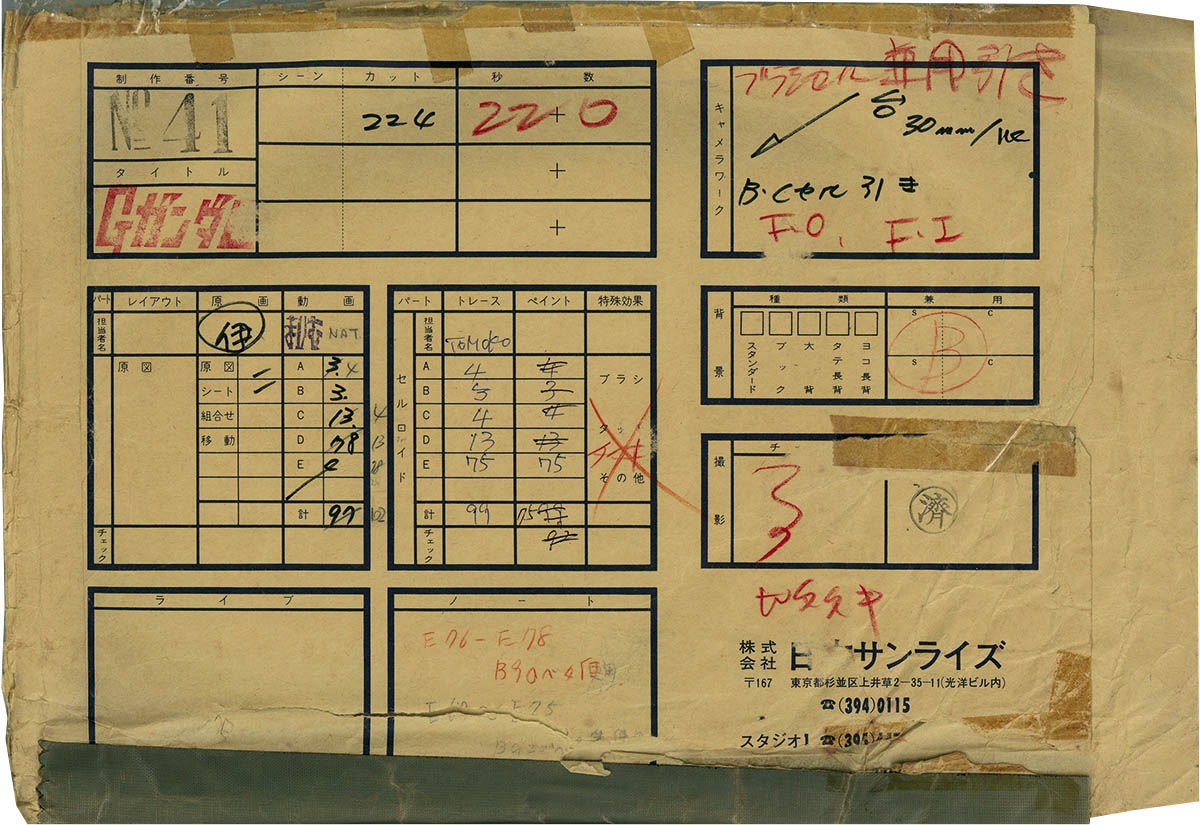 制作番号 シーン カット 秒数
№ 41
224
22+0
タイトル
Gガンダム
+
+
ブラシセル 兼用引き
キャメラワーク
30mm/
B.Cセル 引き
F.O, F.I
パート レイアウト 原画 動画
担当者名 伊 NAT.
原図 原図 A 3. 4
シート B 3.
組合せ C 13. 4
移動 D 78 13
E
計 99 102
チェック
パート トレース ペイント 特殊効果
セルロイド
担当者名 TOMOKO
A 4 4 ブラシ
B 5 3
C 4 4
D 13 13 タッチ
E 75 75 その他
計 99 75
チェック
背景
種類 兼用
スタンダード ブック 大背 タテ長背 ヨコ長背
S C
B
S C
撮影
チ
3
済
ライブ
ノート
E76-E78
E75
株式会社 日本サンライズ
〒167 東京都杉並区上井草2-35-11(光洋ビル内)
☎(394)0115
スタジオ1 ☎(394)